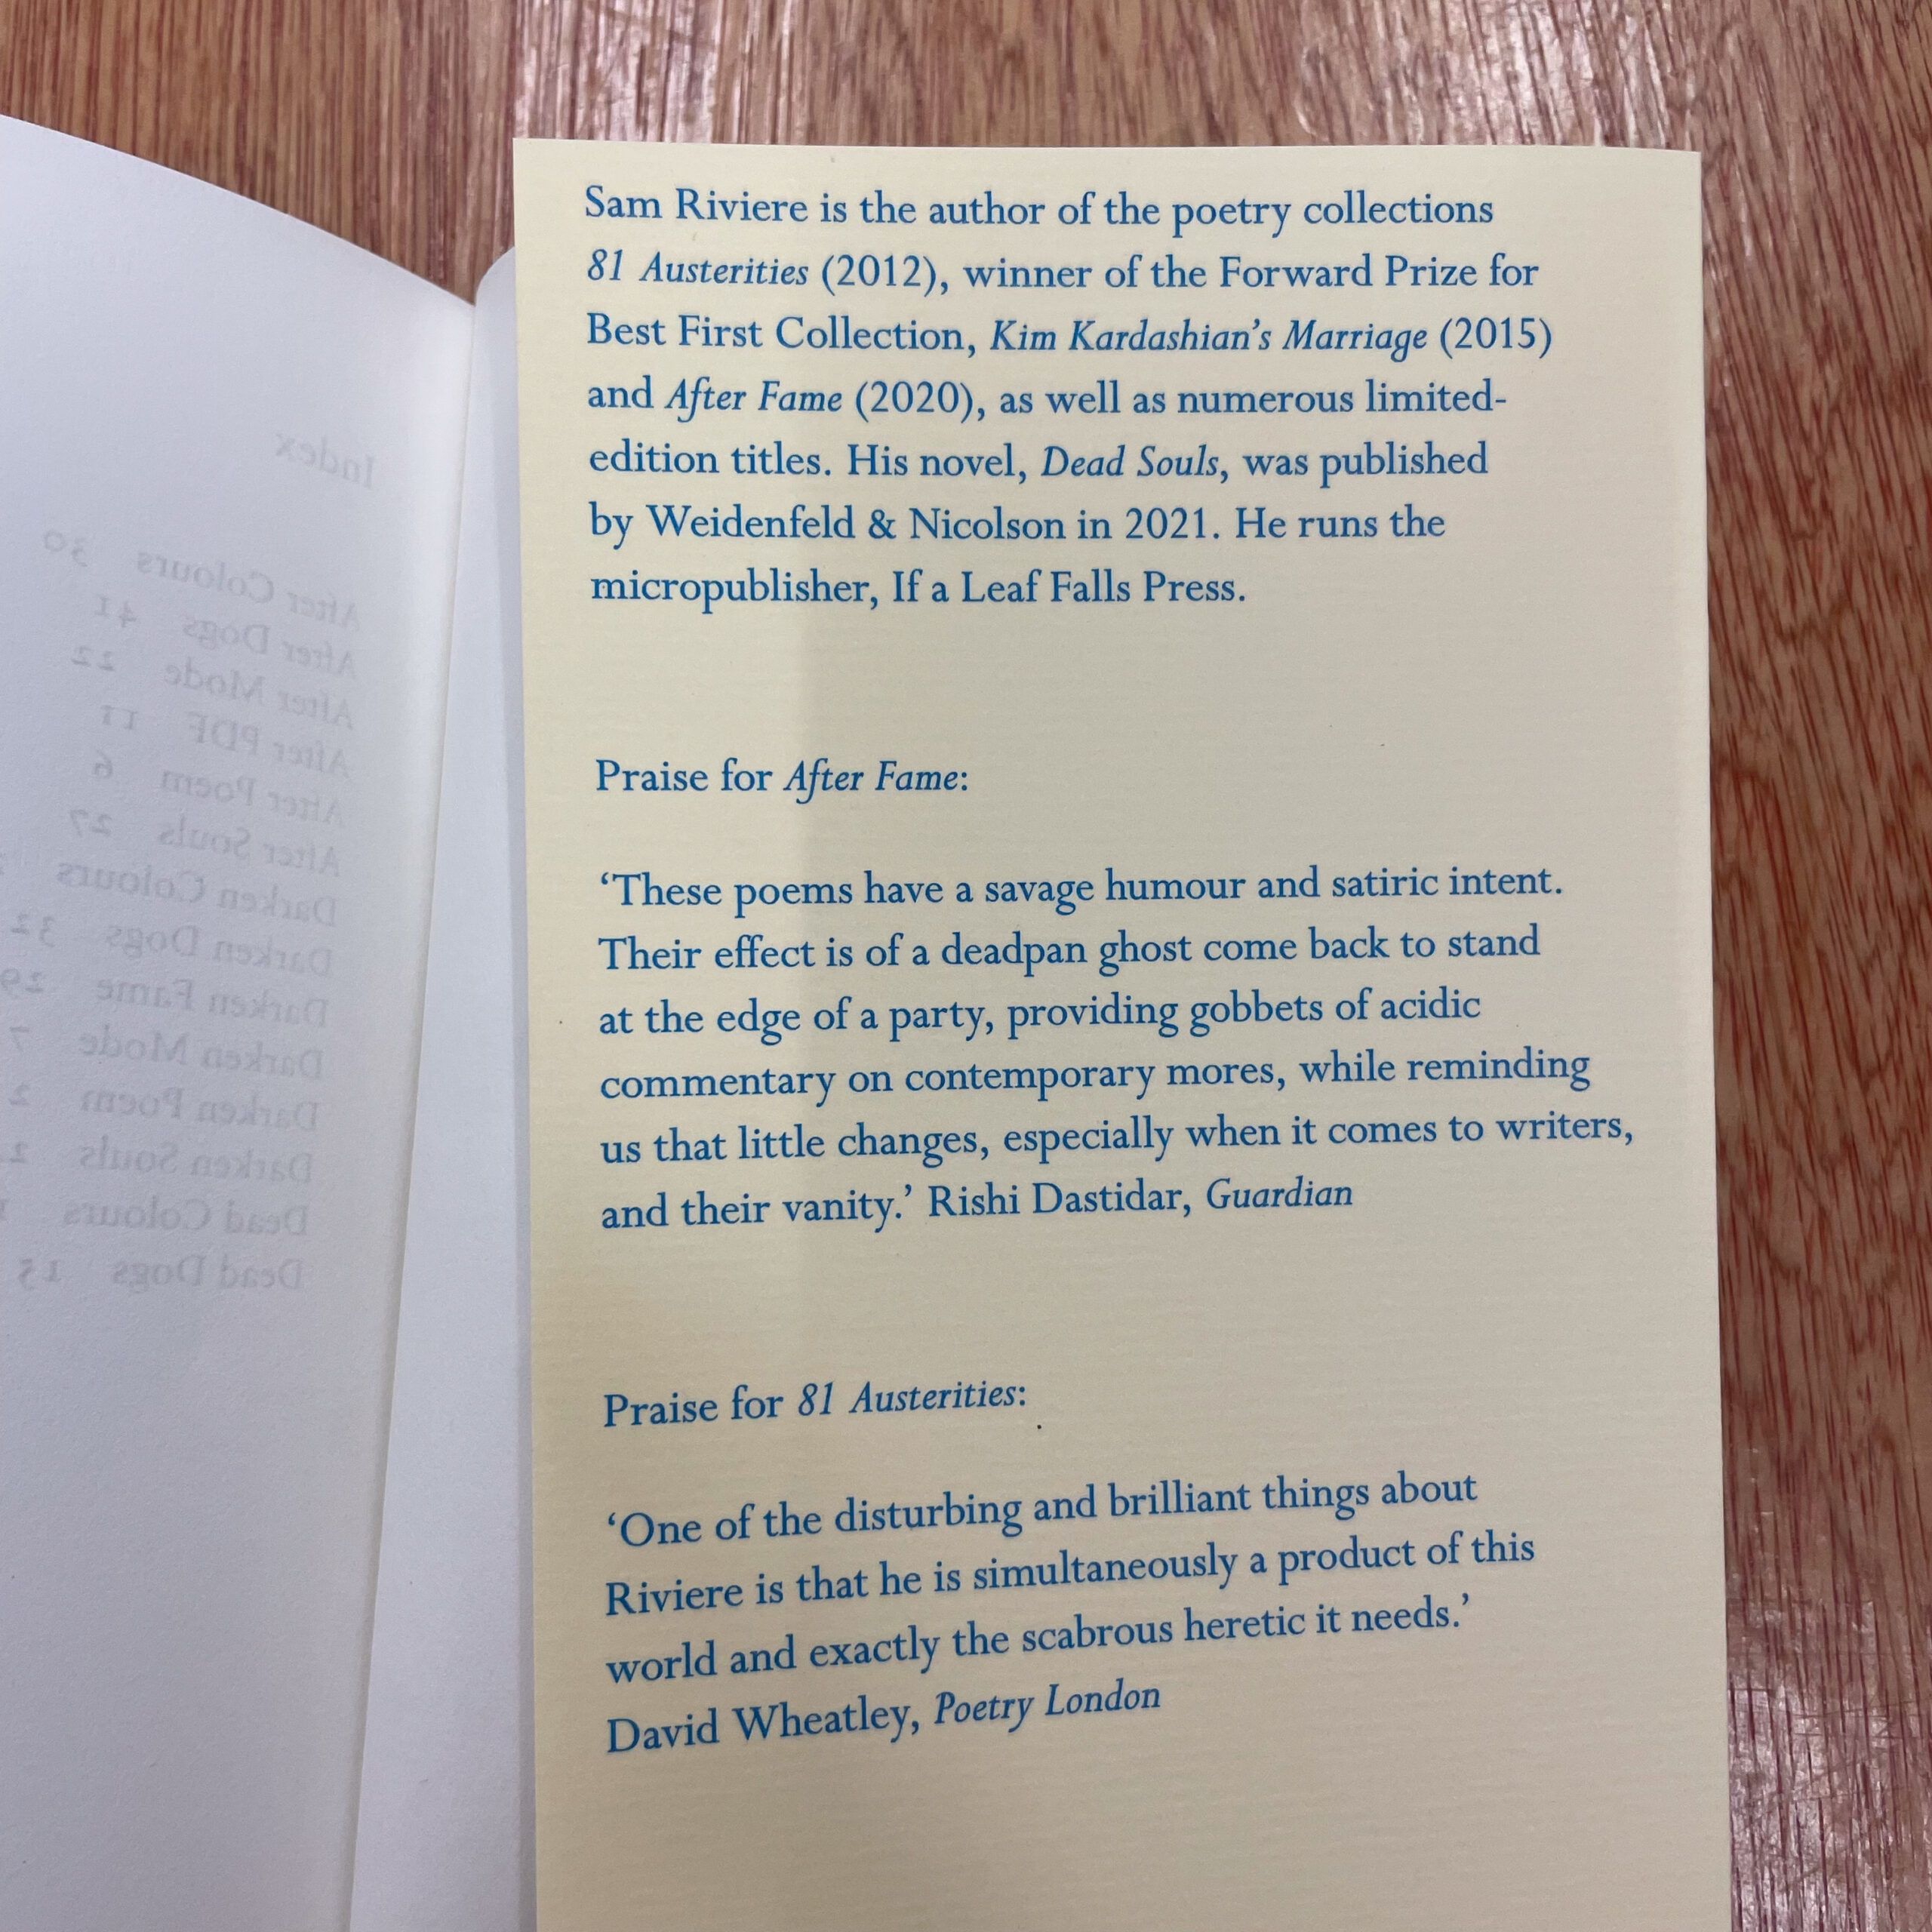 Index
After Colours 30
After Dogs 41
After Mode 22
After PDF 11
After Poem 6
After Souls 27
Darken Colours
Darken Dogs 32
Darken Fame 29
Darken Mode 7
Darken Poem
Darken Souls
Dead Colours
Dead Dogs 15
Sam Riviere is the author of the poetry collections
81 Austerities (2012), winner of the Forward Prize for
Best First Collection, Kim Kardashian’s Marriage (2015)
and After Fame (2020), as well as numerous limited-
edition titles. His novel, Dead Souls, was published
by Weidenfeld & Nicolson in 2021. He runs the
micropublisher, If a Leaf Falls Press.
Praise for After Fame:
‘These poems have a savage humour and satiric intent.
Their effect is of a deadpan ghost come back to stand
at the edge of a party, providing gobbets of acidic
commentary on contemporary mores, while reminding
us that little changes, especially when it comes to writers,
and their vanity.’ Rishi Dastidar, Guardian
Praise for 81 Austerities:
‘One of the disturbing and brilliant things about
Riviere is that he is simultaneously a product of this
world and exactly the scabrous heretic it needs.’
David Wheatley, Poetry London